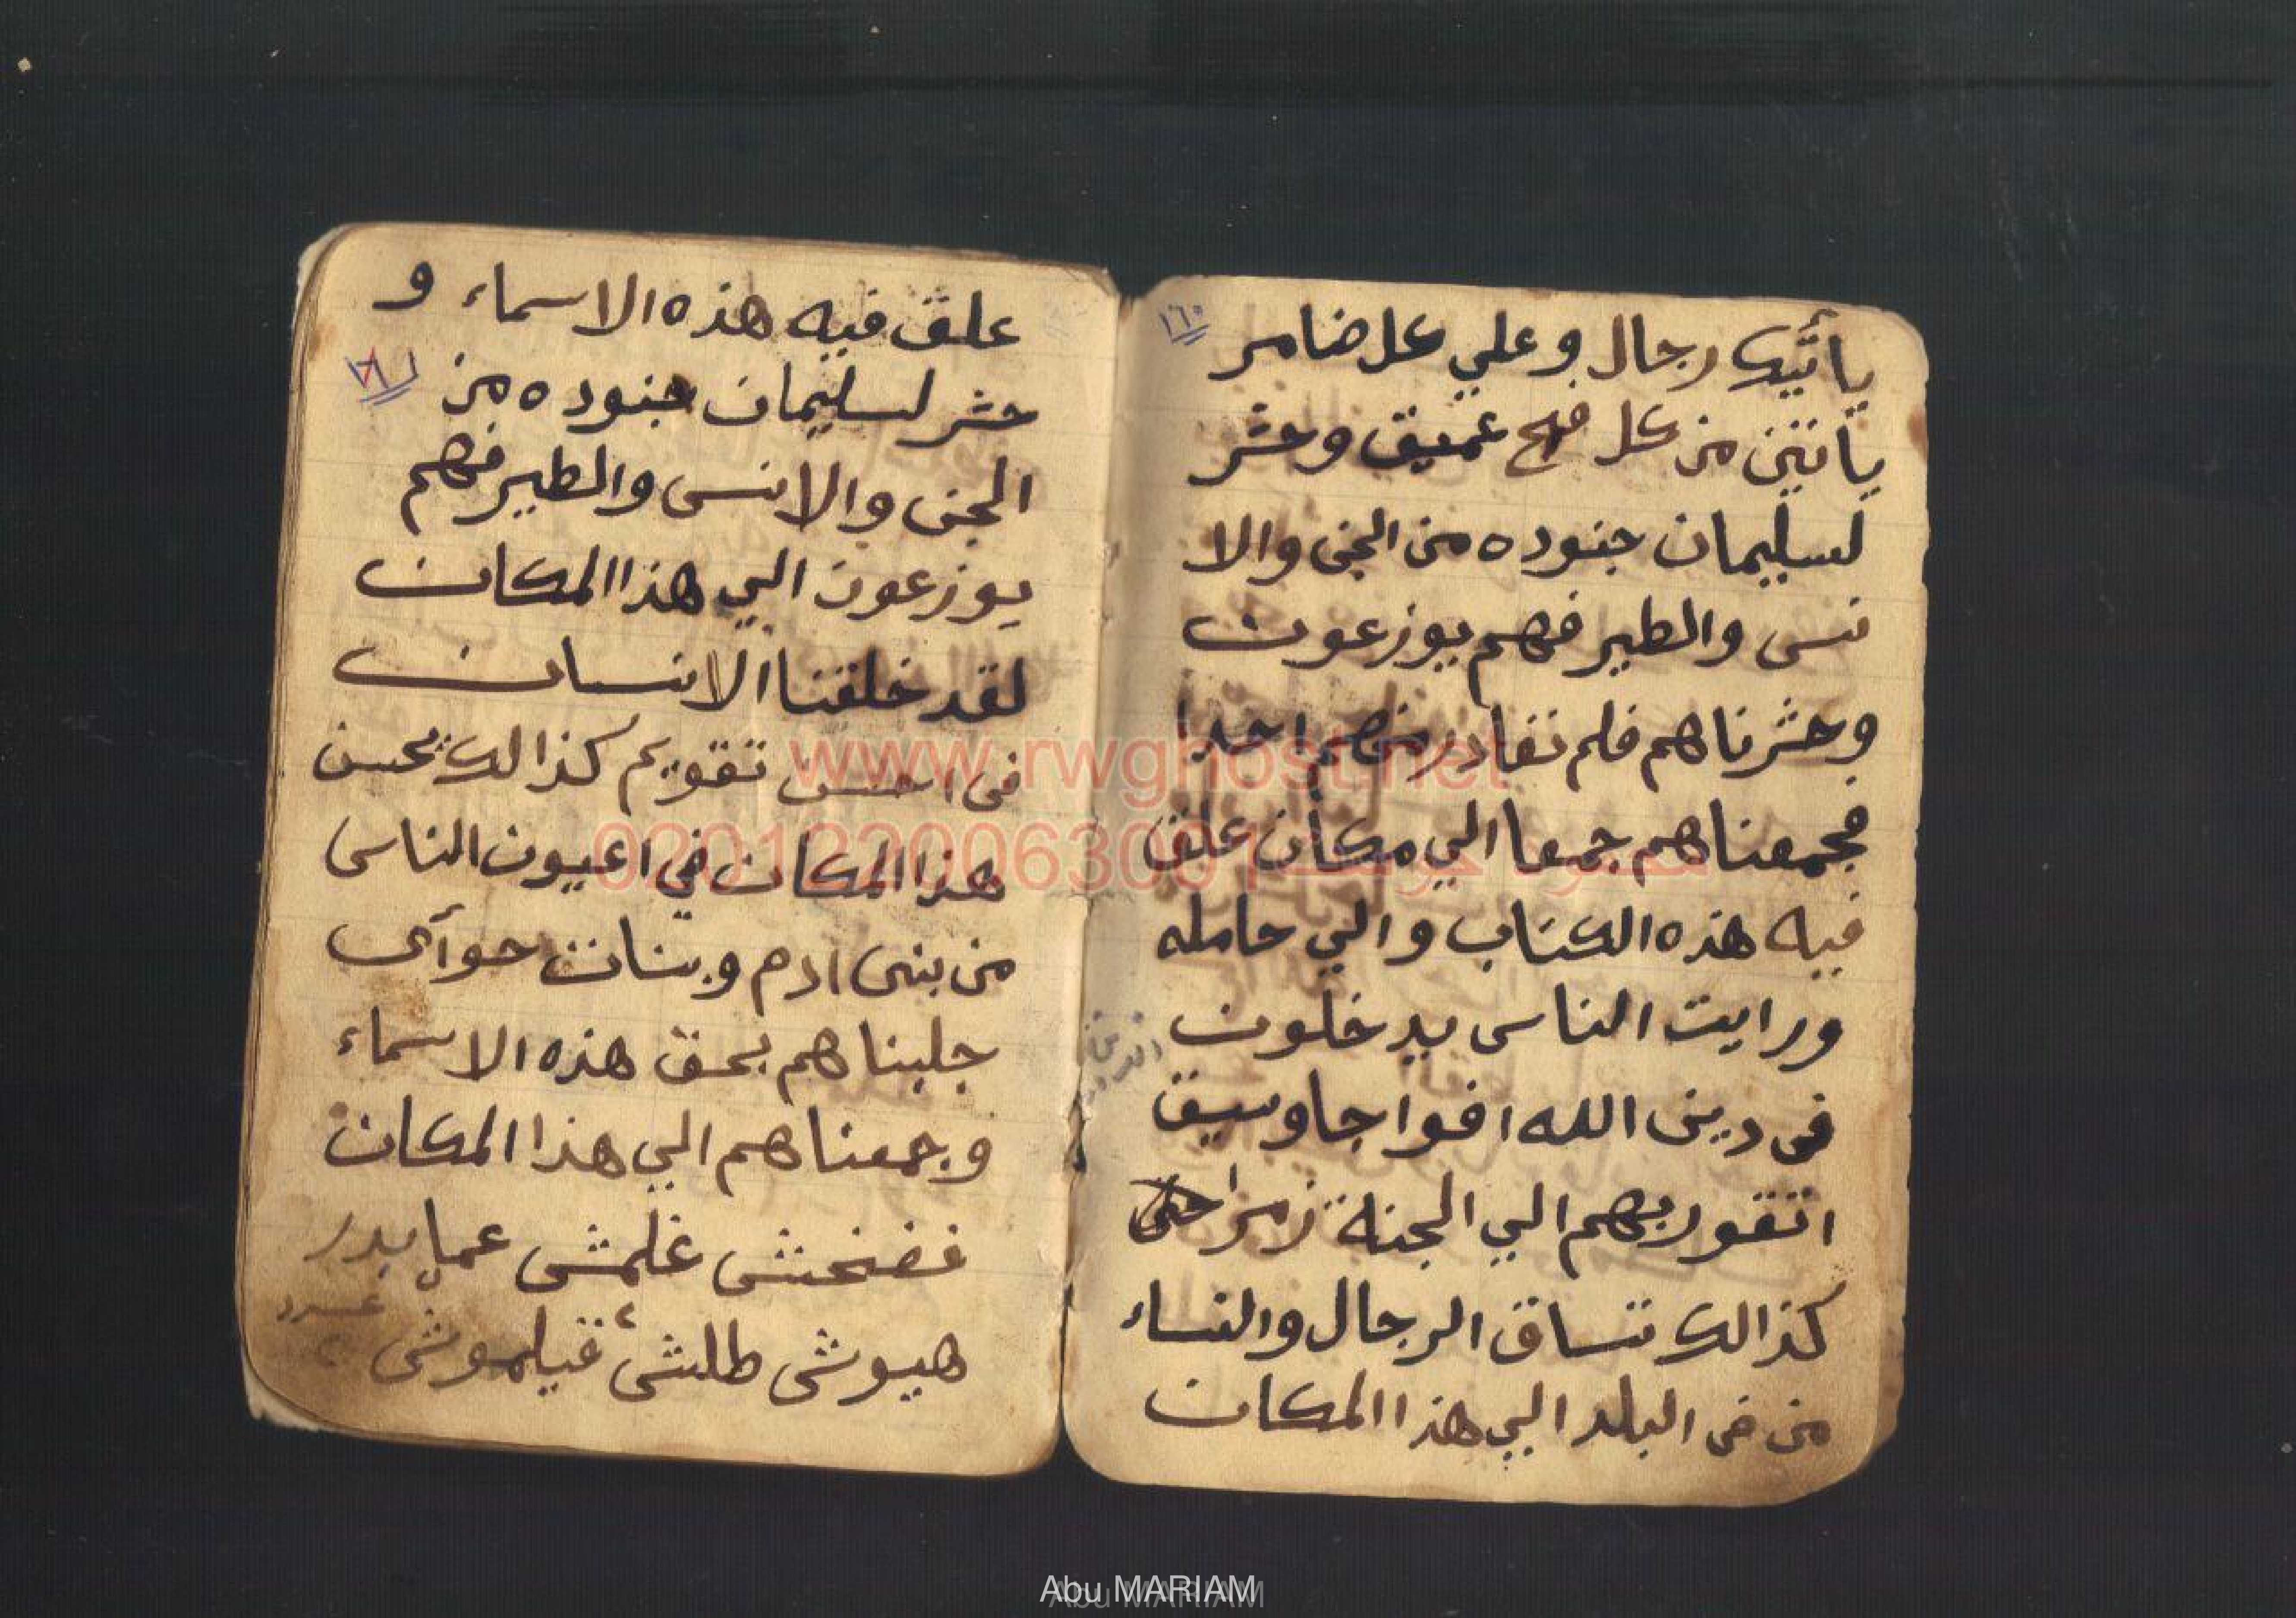 ١٦٠
يأتيك رجال و علي كل ضامر
يأتين من كل فج عميق وحشر
لسليمان جنوده من الجن والا
نس والطير فهم يوزعون
وحشرناهم فلم نغادر منهم احدا
فجمعناهم جمعا الي مكان علق
فيه هذه الكتاب والي حامله
ورايت الناس يدخلون
في دين الله افواجا وسيق
اتقو ربهم الي الجنة زمرا
كذالك تساق الرجال والنساء
من في البلد الي هذا المكان
علق فيه هذه الاسماء و
١٦١
حشر لسليمان جنوده من
الجن والانس والطير فهم
يوزعون الي هذا المكان
لقد خلقنا الانسان
في احسن تقويم كذالك يحسن
هذا المكان في اعيون الناس
من بني ادم وبنات حوآئ
جلبناهم بحق هذه الاسماء
وجمعناهم الي هذا المكان
غلمش
هيوش طلش
www.rwghost.net
Abu MARIAM